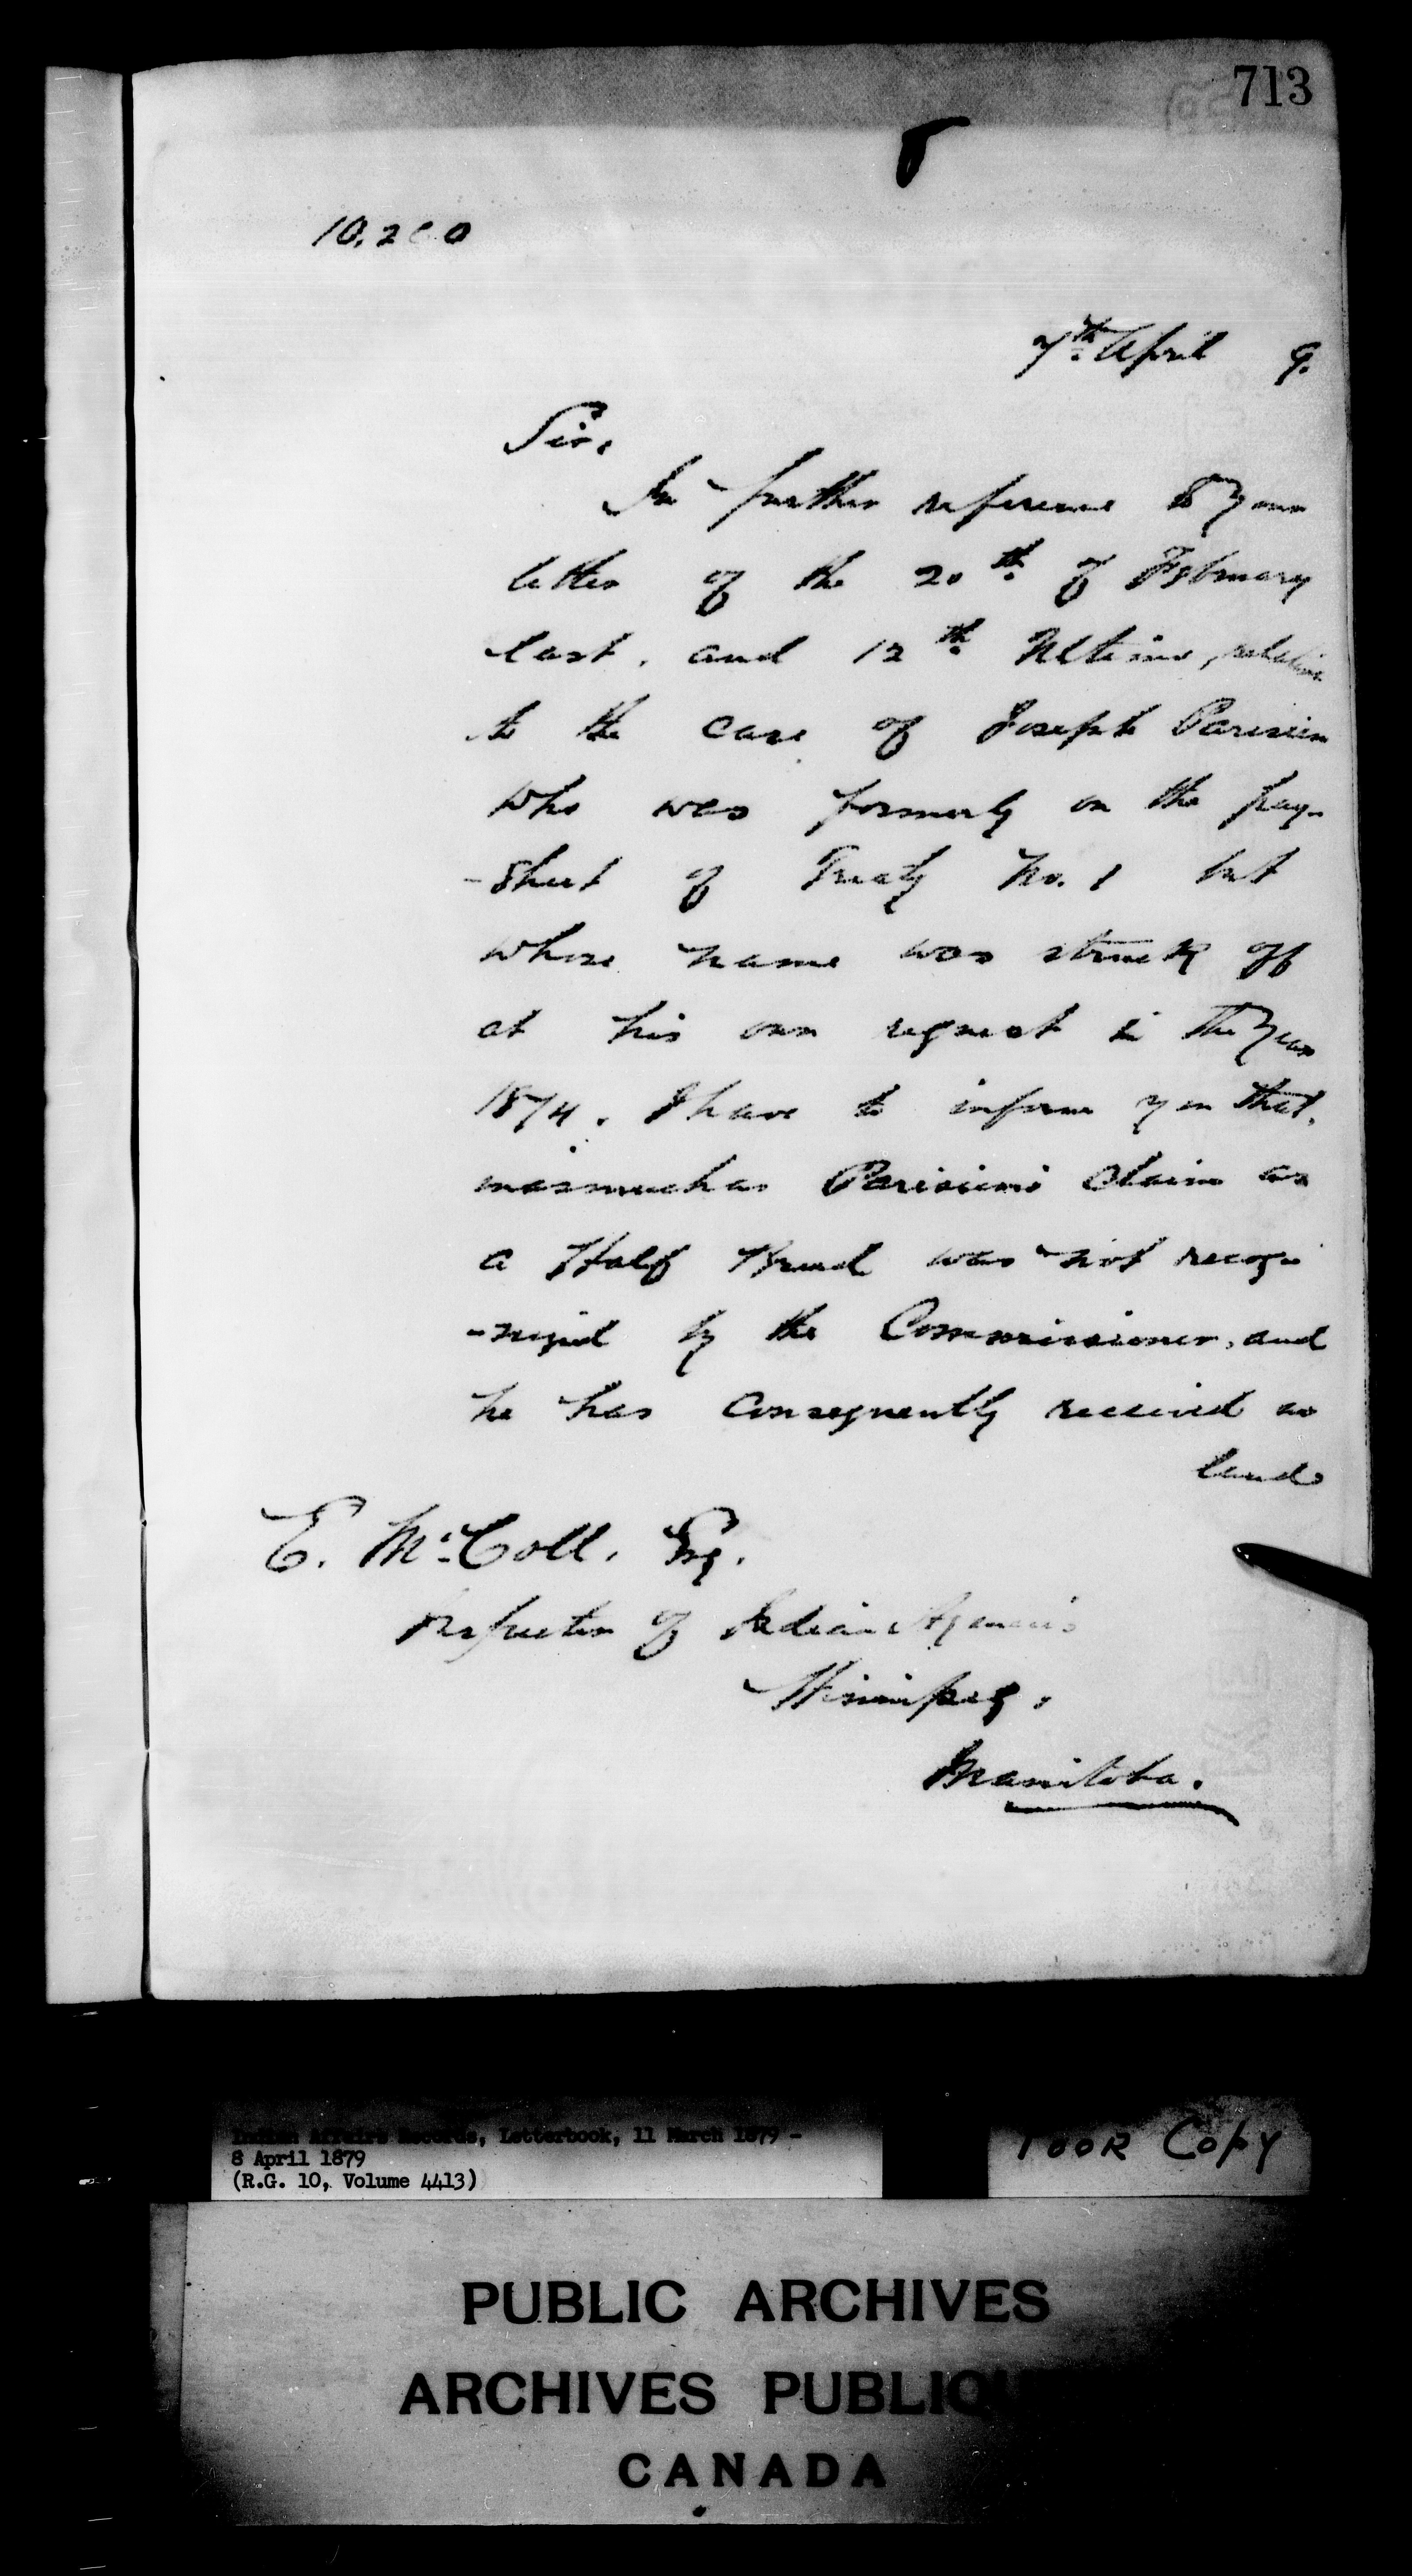 713
7th April 9.
Sir,
In further reference to your
letter of the 20th of February
last, and 12th Ultimo, relative
to the case of Joseph Parisien
who was formerly on the pay-
-sheet of Treaty No. 1 but
whose name was struck off
at his own request in the year
1874. I have to inform you that,
inasmuch as Parisien's claim as
a Half Breed was not recog-
-nized by the Commissioner, and
he has consequently received no
land
E. McColl, Esq.
Inspector of Indian Agencies
Winnipeg,
Manitoba.
Indian Affairs Records, Letterbook, 11 March 1879 -
8 April 1879
(R.G. 10, Volume 4413)
POOR COPY
PUBLIC ARCHIVES
ARCHIVES PUBLIQU
CANADA